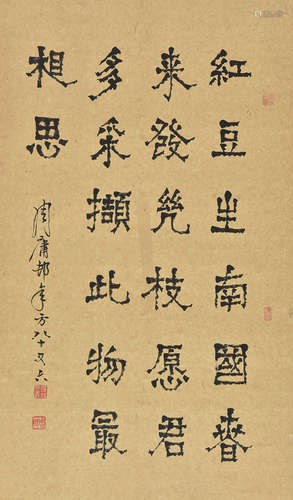 紅豆生南國春
來發幾枝愿君
多采擷此物最
相思
周庸邨年方八十又六